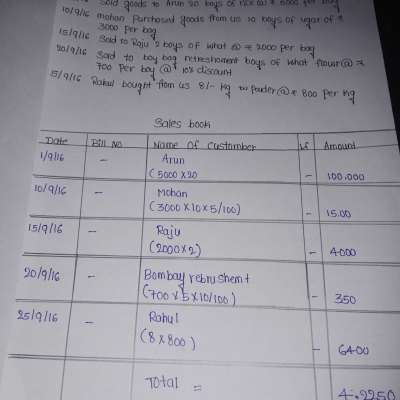 Sold goods to Arun 20 boys of rice @ ₹ 5000 per bag
10/9/16 mohan Purchased goods from us 10 boys of ugar of ₹
3000 per bag
15/9/16 Sold to Raju 2 boys of what @ ₹ 2000 per bag
20/9/16 Sold to boy bag retreshoment boys of what flour @ ₹
700 Per boy @ 10% discount
25/9/16 Rahul bought from us 8/- kg powder @ ₹ 800 per kg
Sales book
Date Bill No. Name Of Custamber Lf Amount
1/9/16 - Arun
(5000 x 20 - 100.000
10/9/16 - Mohan
(3000 x 10 x 5/100) - 15.00
15/9/16 - Raju
(2000 x 2) - 4000
20/9/16 - Bombay rebrushemt
(700 x 5 x 10/100) - 350
25/9/16 - Rahul
(8 x 800) - 6400
Total = 4.2250